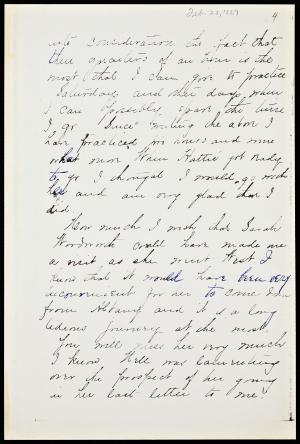 Feb. 22, 1889
4
into consideration the fact that
three quarters of an hour is the
most that I can give to practice
Saturdays and other days, when
I can possibly spare the time
I go Since writing the above I
have practiced an hour and some
what more Hattie got ready
to go I thought I would go with
her and am very glad that I
did.
How much I wish that Sarah
Wordworth could have made me
a visit, as she went West I
know that it would have been very
inconvenient for her to come down
from Albany and it is a long
tedious journey at the most.
You will miss her very much
I know Nell was lamenting
over the prospect of her going
in her last letter to me.